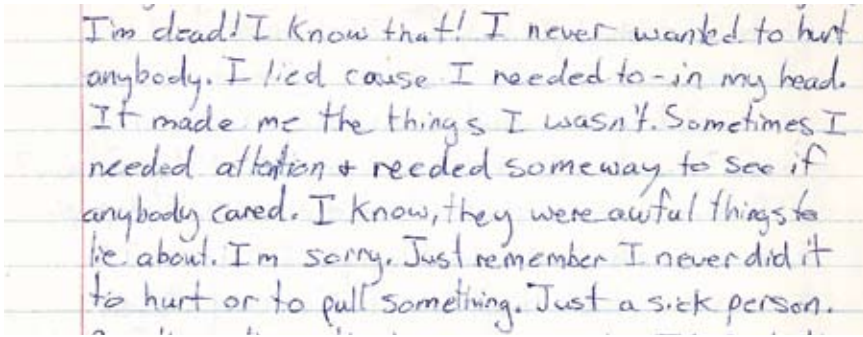 I'm dead! I know that! I never wanted to hurt
anybody. I lied cause I needed to - in my head.
It made me the things I wasn't. Sometimes I
needed attention + needed someway to see if
anybody cared. I know, they were awful things to
lie about. I'm sorry. Just remember I never did it
to hurt or to pull something. Just a sick person.